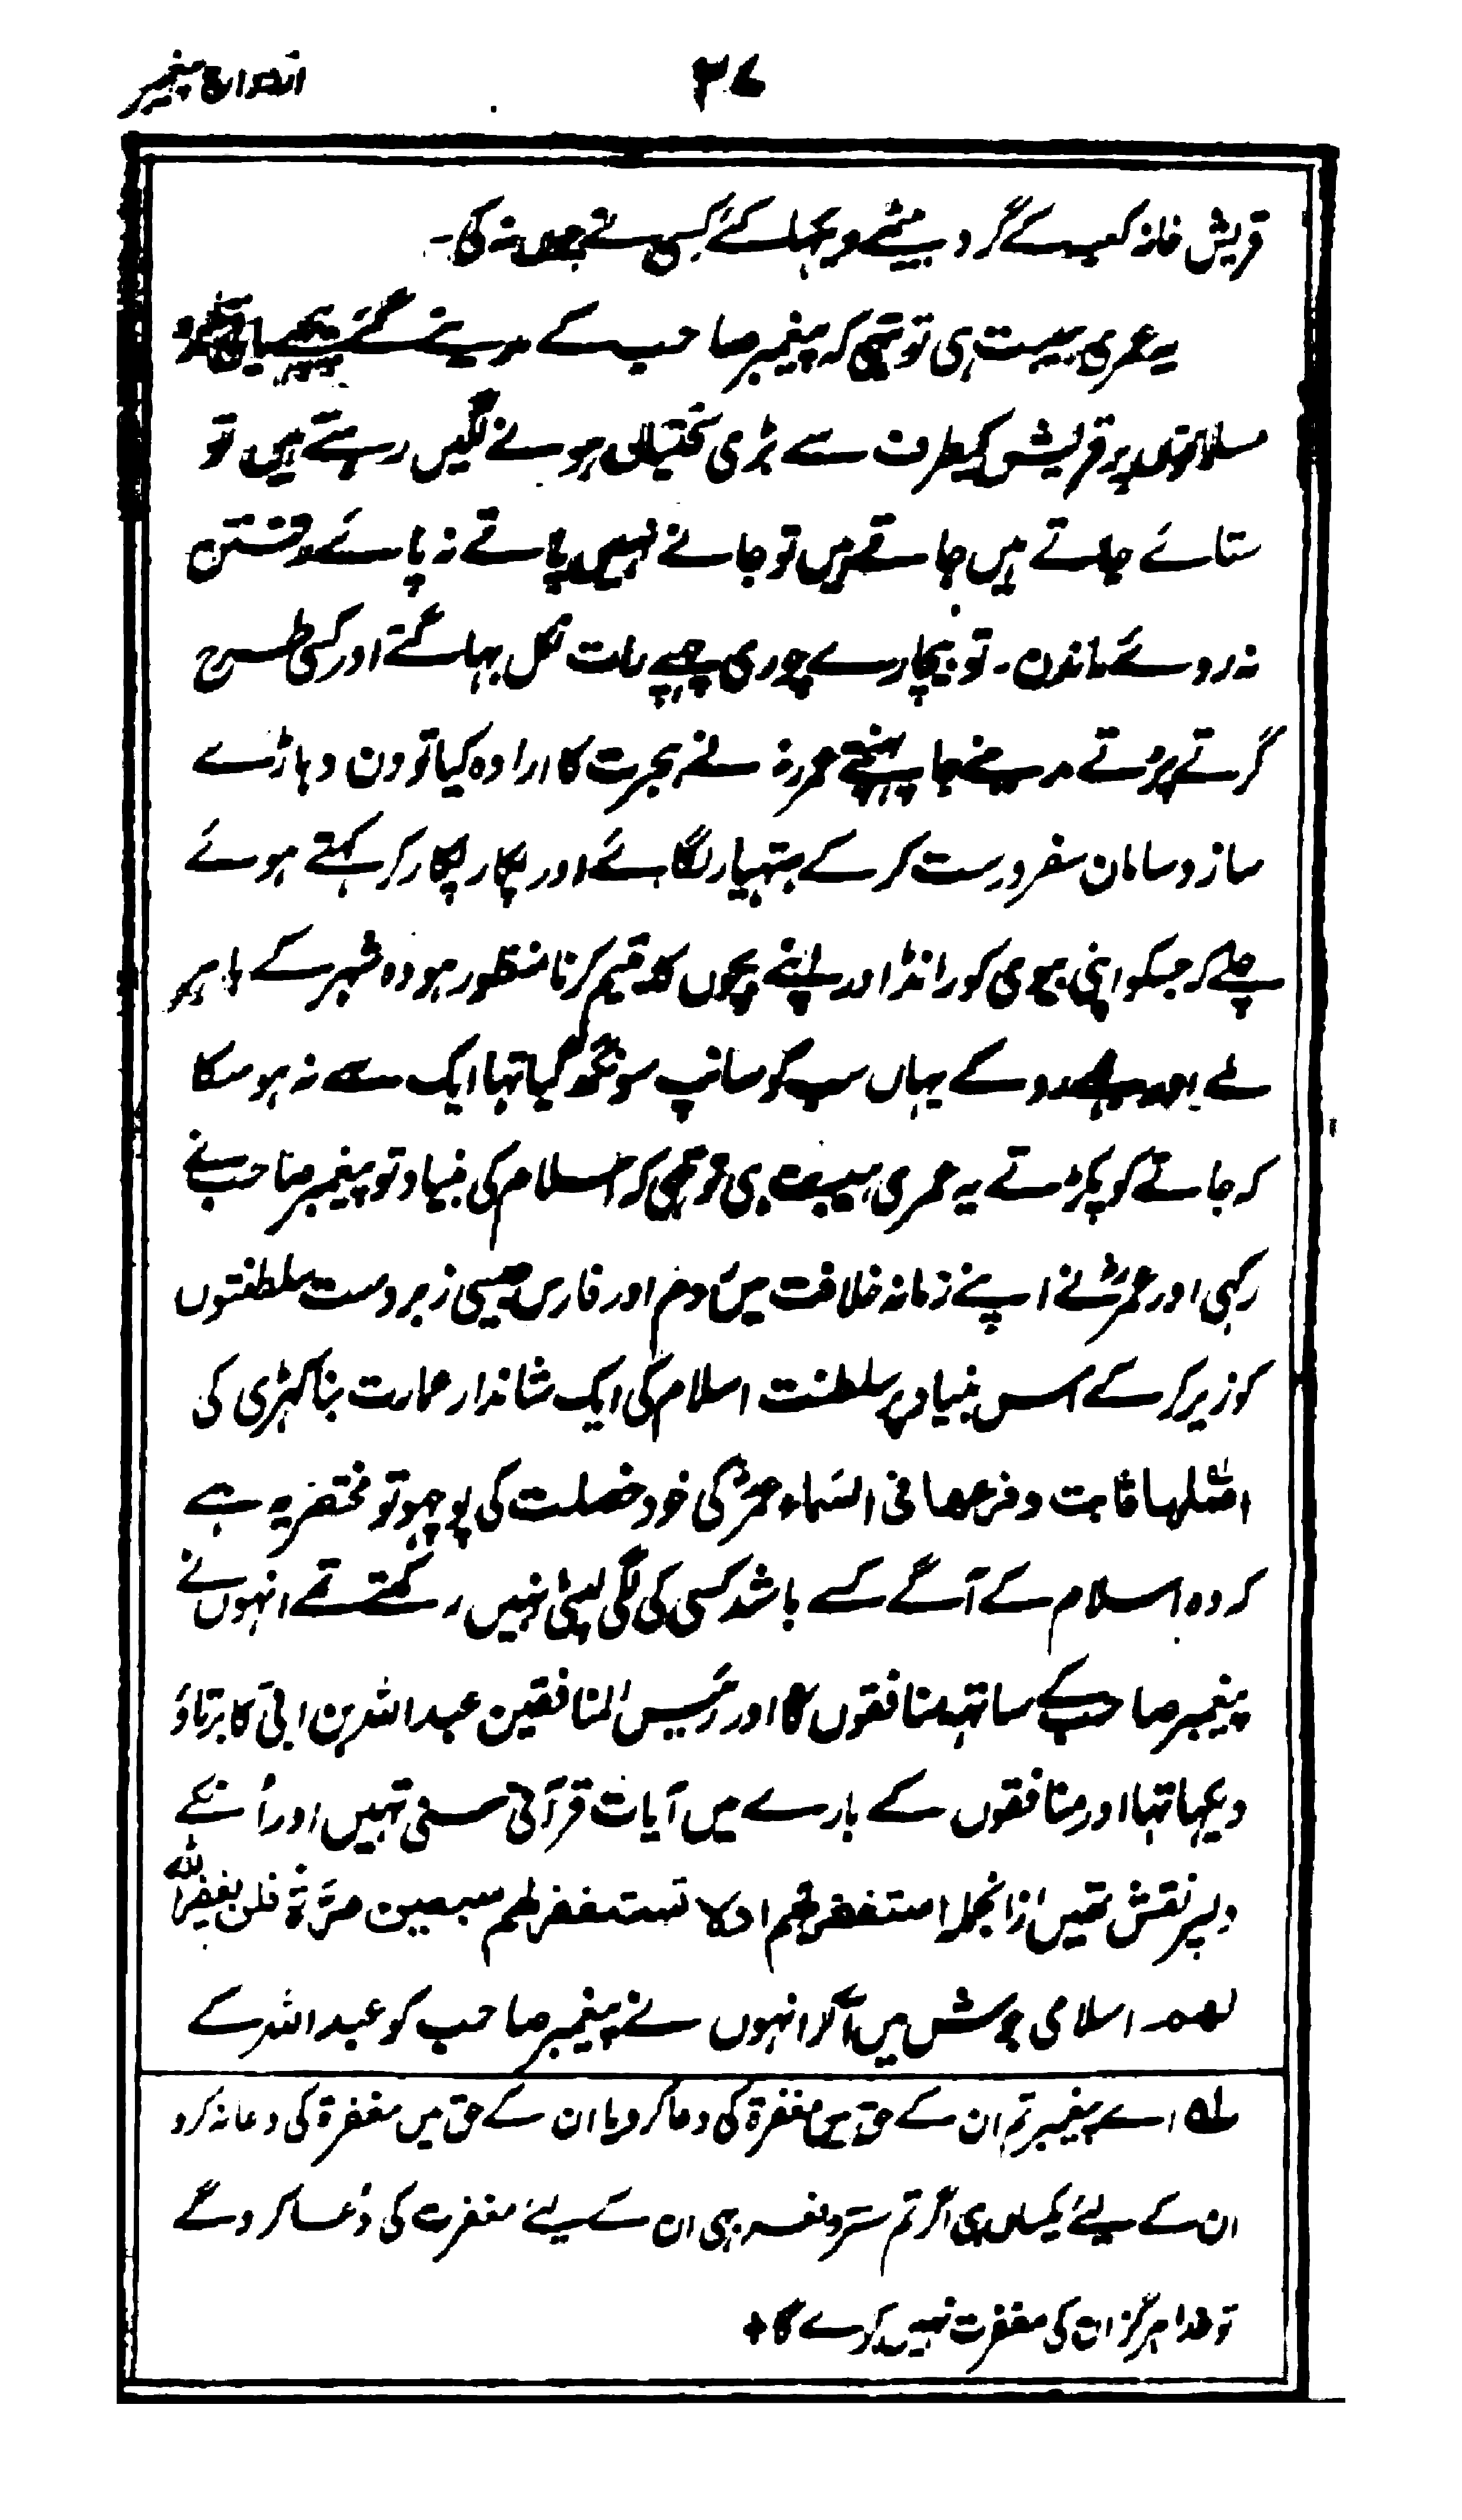 ۲۷
قریش خانہ کعبہ کے گرد بیٹھے دیکھا کئے کسی نے چوں نہ کی۔
یہ عمری ہیبت ہی تو تھی کہ پیغمبر صاحب کے مدینے گئے پیچھے
مسلمانوں پر قریش کیطرف سے بڑی سختیاں ہونے لگیں رہتے ہیں تو
ستائے جاتے ہیں جاتے ہیں تو جانے نہیں پاتے نہ پائے رفتن
نہ روئے ماندن۔ تو بیچارے چوری چھپے رات نکل بھاگتے اور کسی طرح
گرتے پڑتے مدینے جا پہنچے عمرؓ نے ہجرت کا ارادہ کیا تو دن دہاڑے
ساز و سامان سفر درست کر کے ہتھیار لگائے اور پکار پکار کر کہتے ہوئے
چلے کہ جسکو اپنی بیوی کو رانڈ اور اپنے بچوں کو یتیم کرنا منظور ہو وہ شہر کے باہر
کے یہاں سب کو سانپ سونگھ گیا تھا ایک سے نہ ہوسکا
کہ جانے کو پکڑتے یہ عمری ہیبت ہی تو تھی کہ اسلام کی بنیاد تو پیغمبر صاحب نے
رکھی اور عمرؓ نے اپنے زمانہ خلافت میں روم اور فارس جیسی زبردست سلطنتوں
کو زیر کر کے اس بنیاد پر سلطنت اسلام کی ایک شاندار عمارت بنا کھڑی کی
اصلہا ثابت و فرعھا فی السماء عمرؓ کی خود خصلت کی پوچھو تو مختصر یہ ہے
کہ وہ اسلام کے آگے کسے باشد کسی کی لگی لپٹی نہیں رکھتے تھے انہوں نے
پیغمبر صاحب کے ساتھ منافقوں کا اور رئیس المنافقین عبداللہ بن ابی کا برتاؤ
دیکھا تھا اور منافقوں کے بارے میں آیات قرآنی سنی تھیں اور اُنکے
دلپر نقش تھیں ازانجملہ استغفر لھم او لا تستغفر لھم سبعین مرّۃ فلن یغفر اللہ
لھم۔ اسلامی جوش میں آکر انہوں نے پیغمبر صاحب کو عبداللہ کے
ملہ اے پیغمبر تم ان کے حق میں مغفرۃ کی دعا کرو یا ان کے حق میں مغفرۃ کی دعا نہ کرو
ان کے لیے یکساں ہی اگر تم ستر دفعہ بھی ان کے لیے مغفرت کی دُعا کرو گے
تو خدا ہرگز ان کی مغفرت نہیں کرے گا ✦